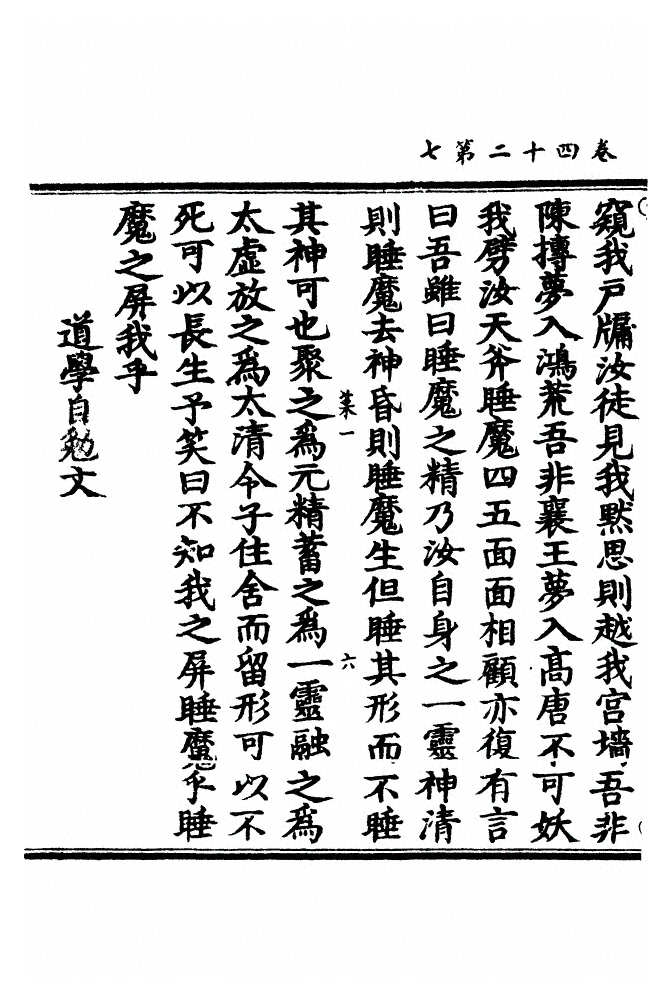 卷四十二第七
窺我戸牖汝徒見我默思則越我宮墻吾非
陳摶夢入鴻荒吾非襄王夢入高唐不可妖
我劈汝天斧睡魔四五面面相顧亦復有言
曰吾雖曰睡魔之精乃汝自身之一靈神清
則睡魔去神昏則睡魔生但睡其形而不睡
棊一 六
其神可也聚之爲元精蓄之爲一靈融之爲
太虛放之爲太清令子住舍而留形可以不
死可以長生予笑曰不知我之屏睡魔乎睡
魔之屏我乎
道學自勉文